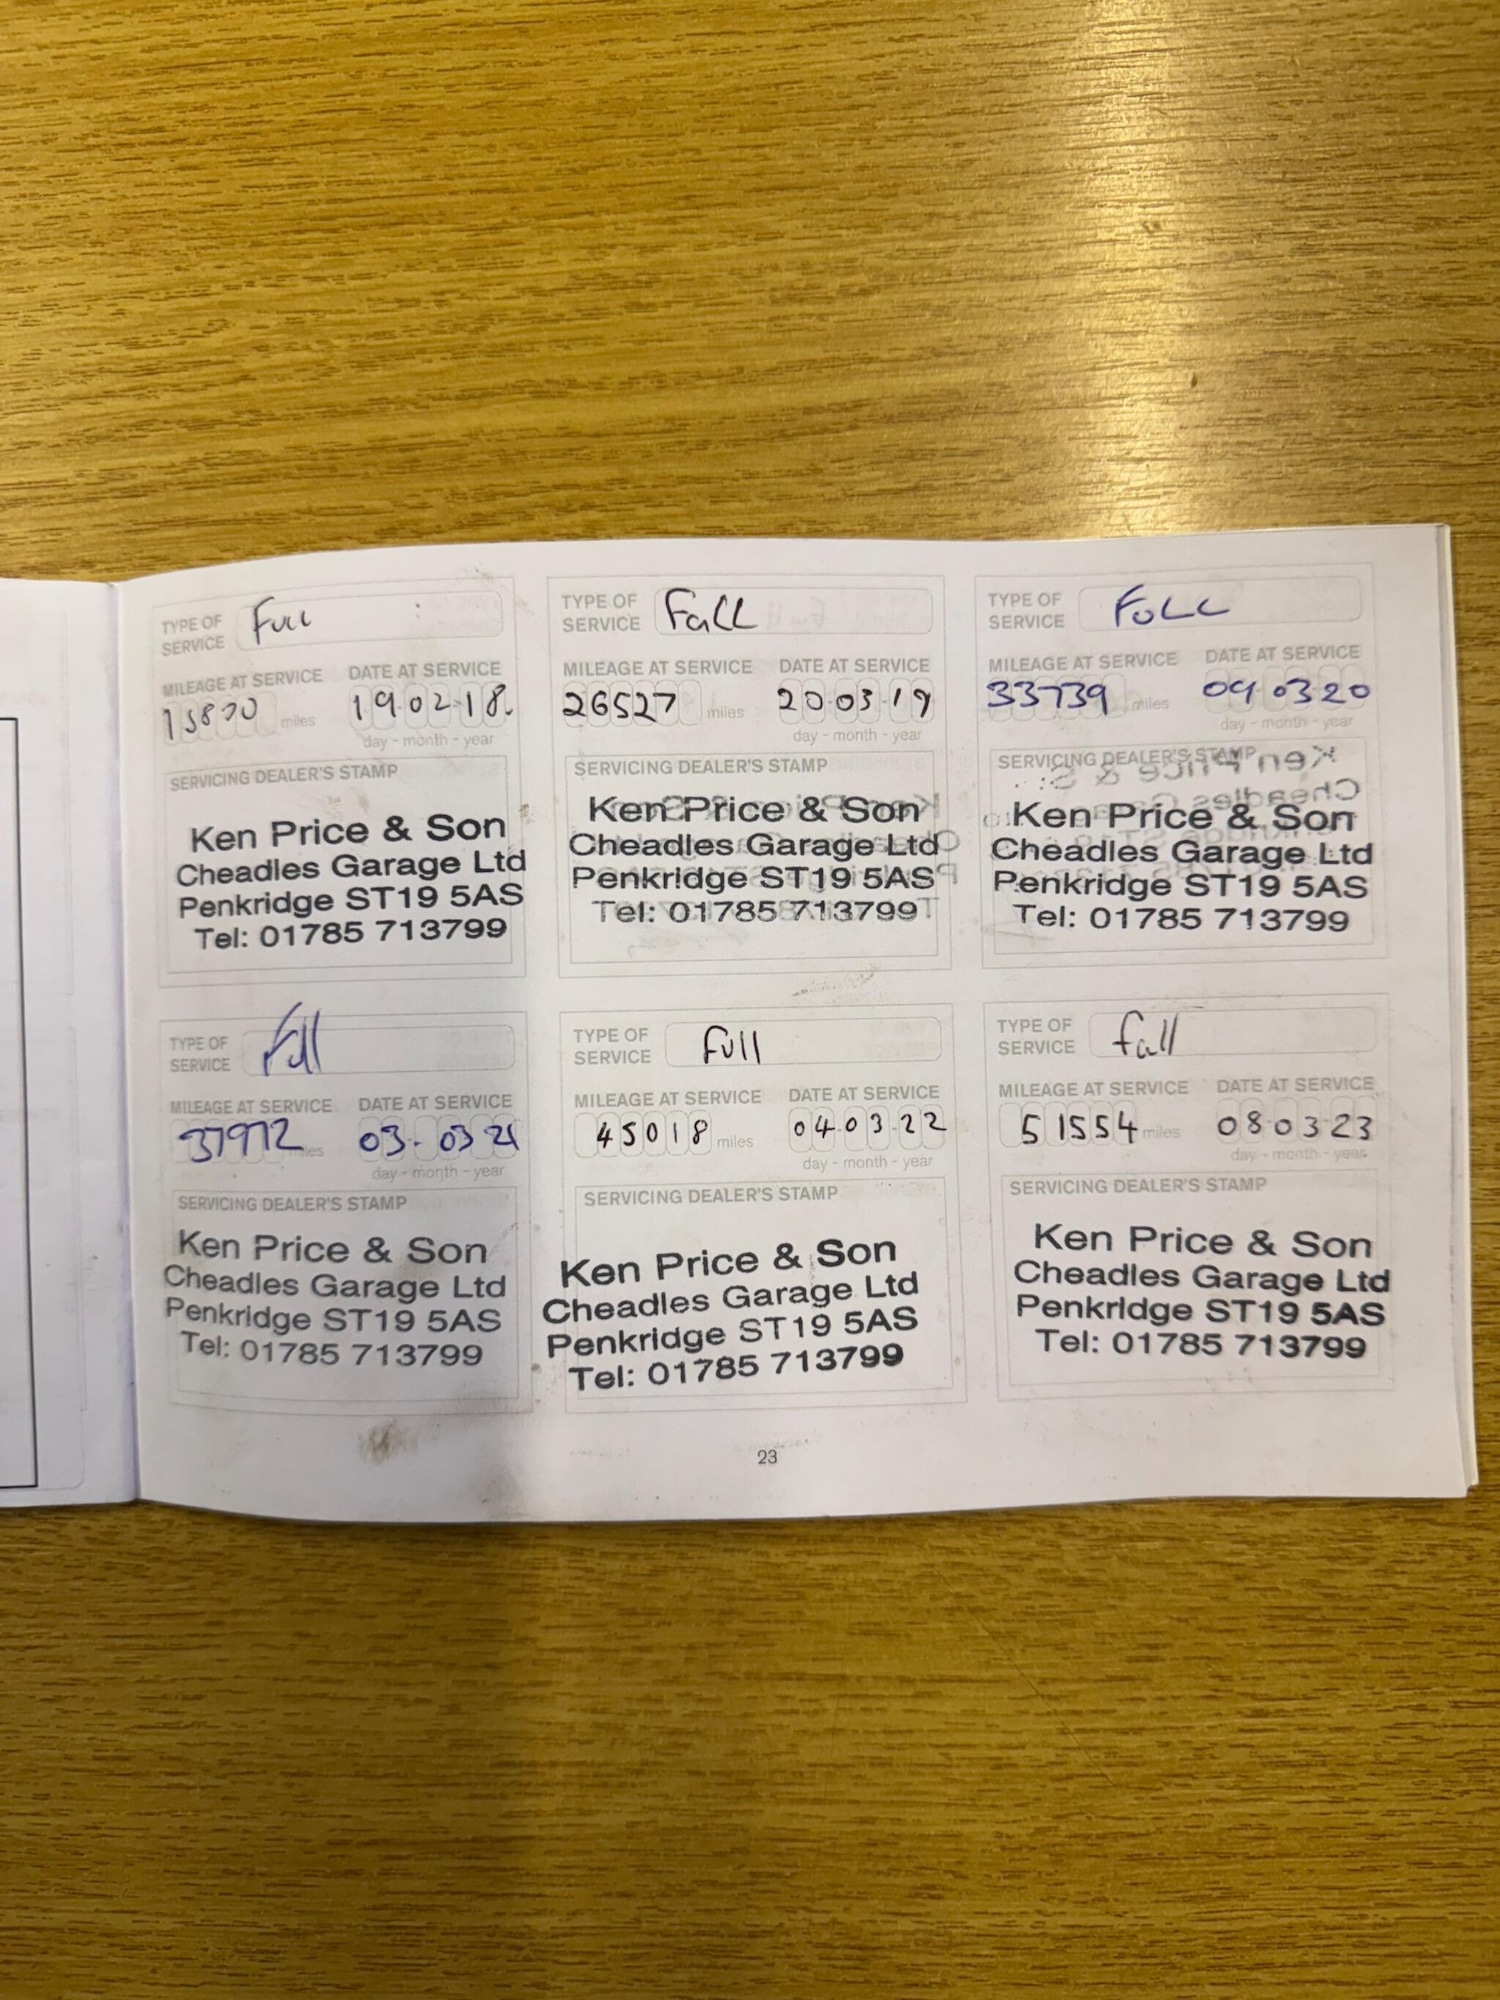 TYPE OF SERVICE Full
MILEAGE AT SERVICE DATE AT SERVICE
miles 19.02.18.
day - month - year
SERVICING DEALER'S STAMP
Ken Price & Son
Cheadles Garage Ltd
Penkridge ST19 5AS
Tel: 01785 713799
TYPE OF SERVICE Full
MILEAGE AT SERVICE DATE AT SERVICE
26527 miles 20.03.19
day - month - year
SERVICING DEALER'S STAMP
Ken Price & Son
Cheadles Garage Ltd
Penkridge ST19 5AS
Tel: 01785 713799
TYPE OF SERVICE FULL
MILEAGE AT SERVICE DATE AT SERVICE
33739 miles 09.03.20
day - month - year
SERVICING DEALER'S STAMP
Ken Price & Son
Cheadles Garage Ltd
Penkridge ST19 5AS
Tel: 01785 713799
TYPE OF SERVICE Full
MILEAGE AT SERVICE DATE AT SERVICE
37972 miles 03.03 21
day - month - year
SERVICING DEALER'S STAMP
Ken Price & Son
Cheadles Garage Ltd
Penkridge ST19 5AS
Tel: 01785 713799
TYPE OF SERVICE Full
MILEAGE AT SERVICE DATE AT SERVICE
45018 miles 04.03.22
day - month - year
SERVICING DEALER'S STAMP
Ken Price & Son
Cheadles Garage Ltd
Penkridge ST19 5AS
Tel: 01785 713799
TYPE OF SERVICE full
MILEAGE AT SERVICE DATE AT SERVICE
51554 miles 08.03.23
day - month - year
SERVICING DEALER'S STAMP
Ken Price & Son
Cheadles Garage Ltd
Penkridge ST19 5AS
Tel: 01785 713799
23